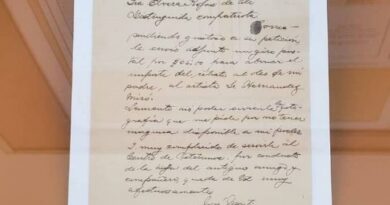 Sra Elvira Rojas de
Distinguida compatriota
Corres-
pondiendo gustoso a su petición
le envio adjunto un giro pos-
tal por para abonar el
importe del retrato al oleo de mi
padre, al artista Sr Hernandez
Lamento no poder enviarle fotografia
que me pide por no tener
ninguna disponible a mi poder
Y muy complacido de servirle al
Comité de por conducto
de la hija del antiguo amigo y
compañero, queda de Ud muy
afectuosamente